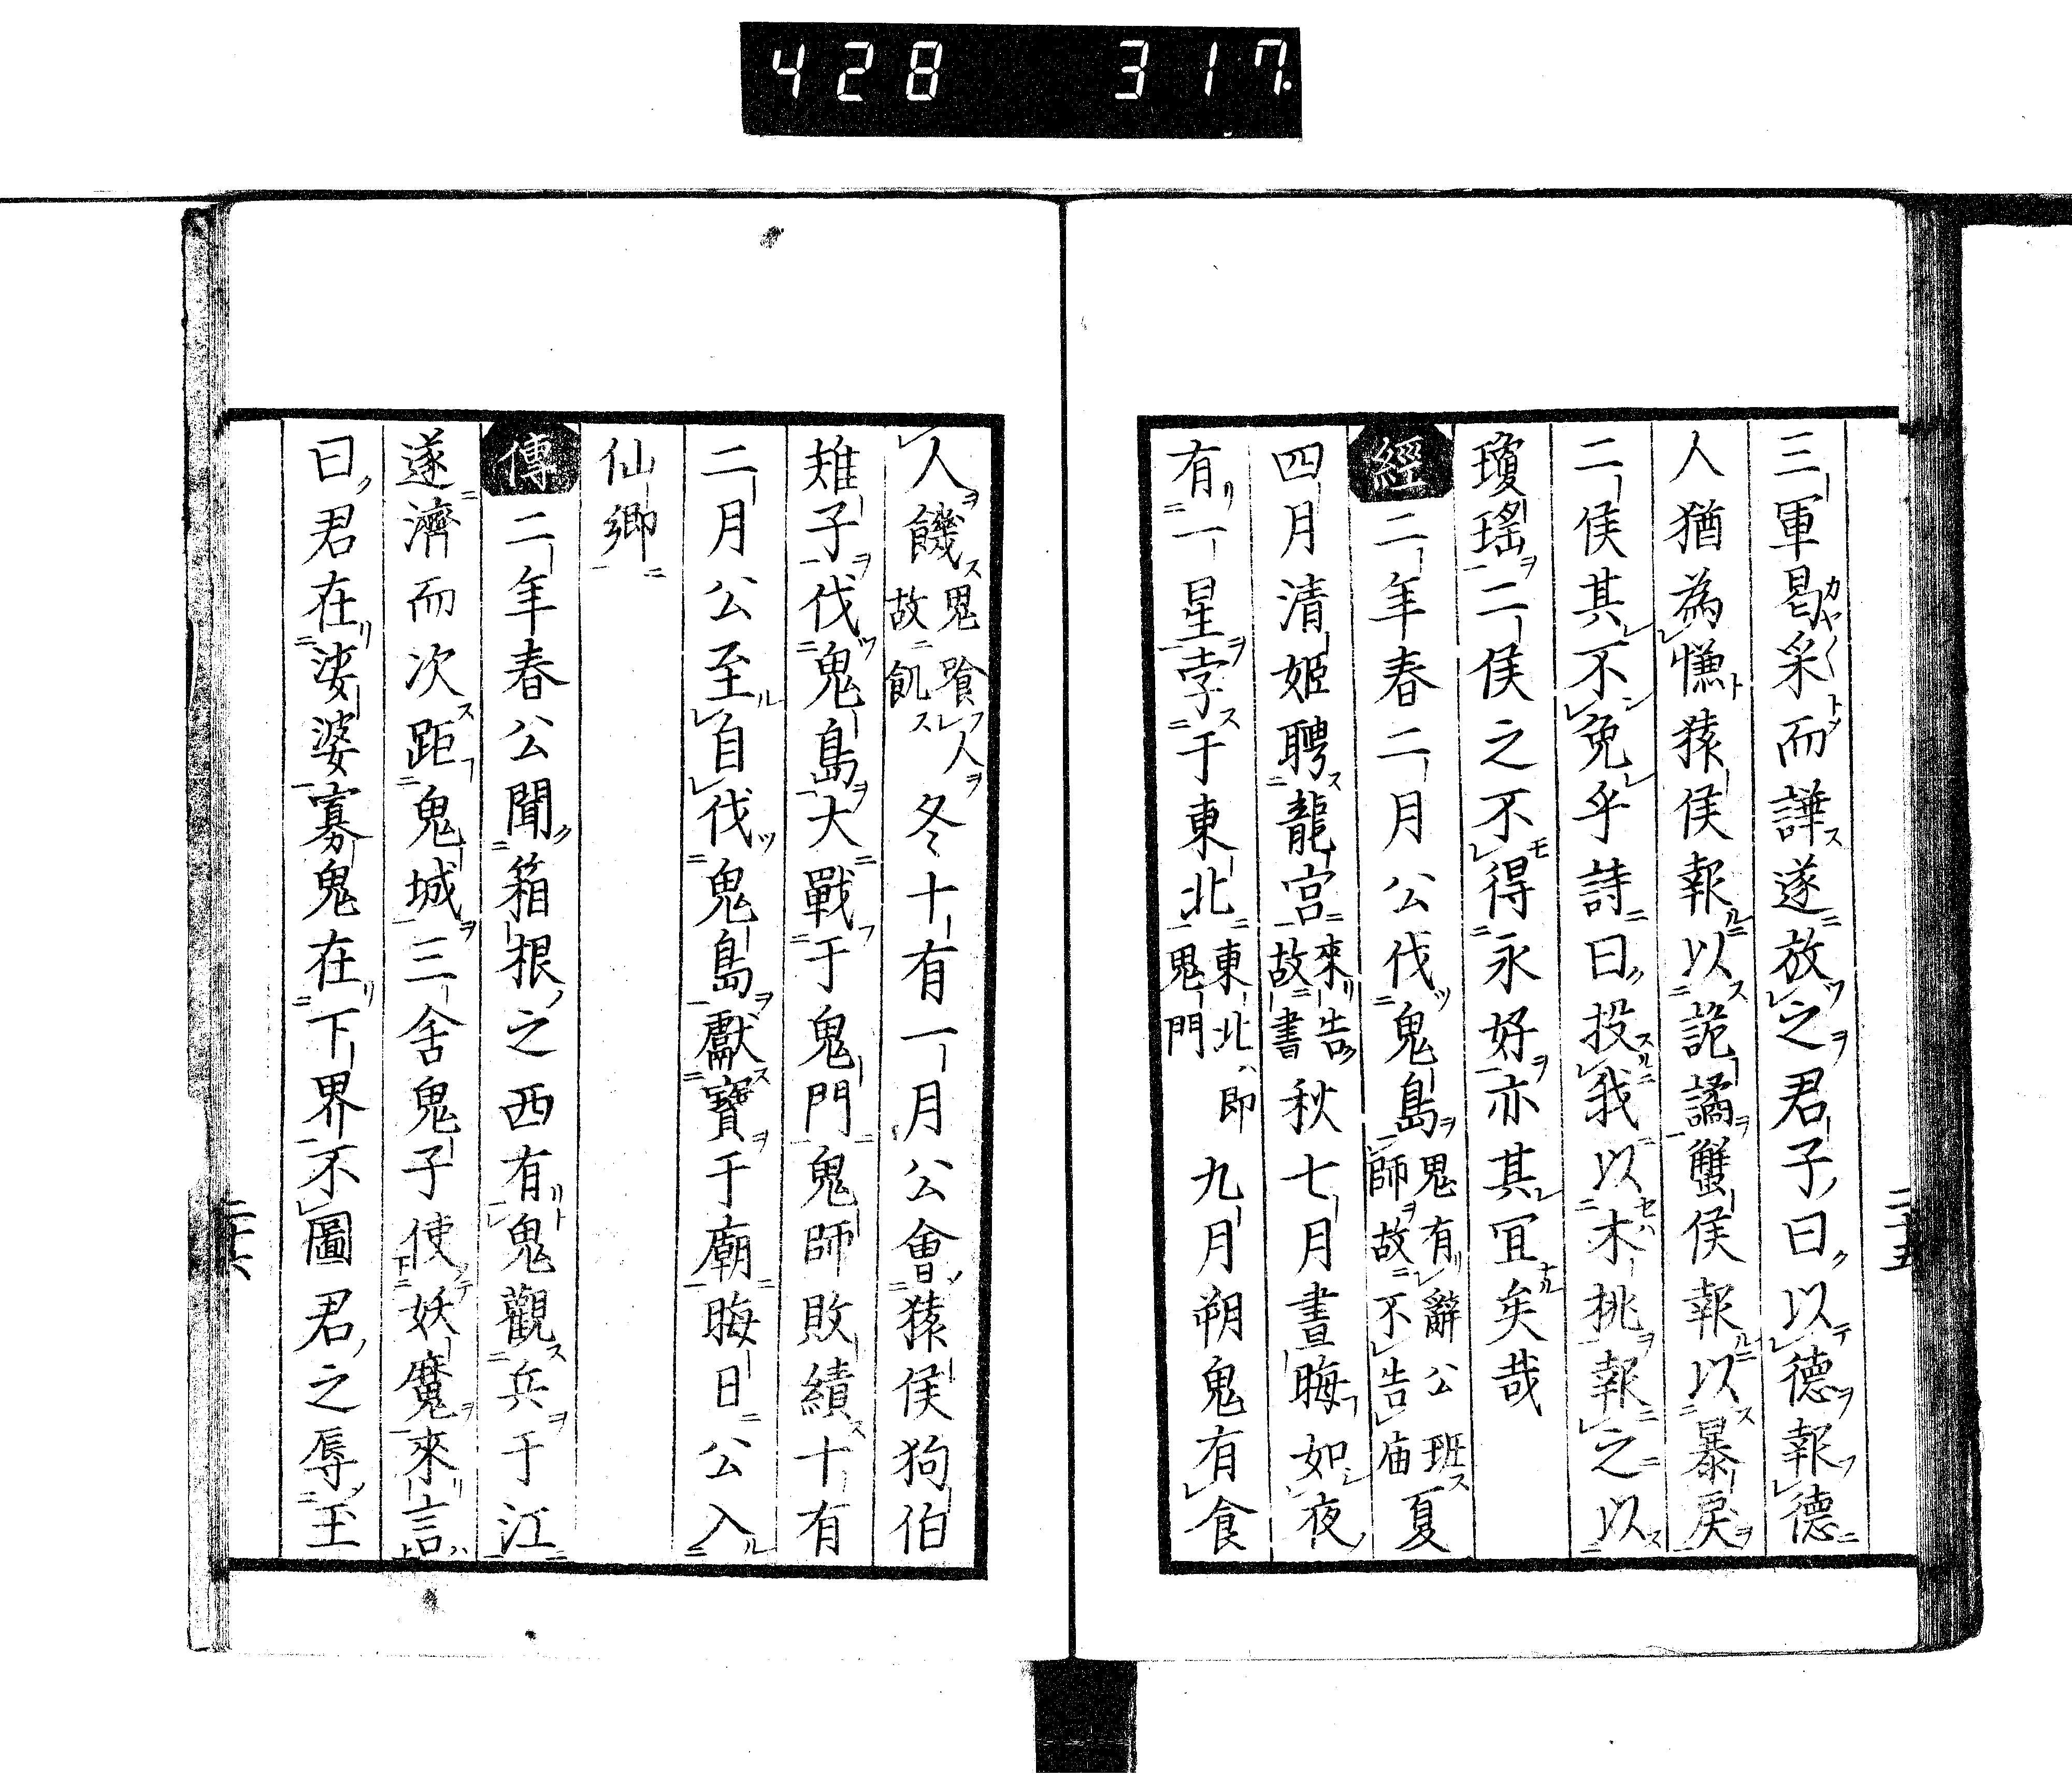 428 317.
三軍晷采而譁遂放之君子曰以德報德
人猶為慊猿侯報以詭譎蟹侯報以暴戻
二侯其不免乎詩曰投我以木桃報之以
瓊瑤二侯之不得永好亦其宜矣哉
經二年春二月公伐鬼島鬼有辭公班師故不告庙夏
四月清姫聘龍宮來告故書秋七月晝晦如夜
有一星孛于東北東北即鬼門九月朔鬼有食
二十五
人饑鬼飧人故飢冬十有一月公會猿侯狗伯
雉子伐鬼島大戰于鬼門鬼師敗績十有
二月公至自伐鬼島獻寶于廟晦日公入
仙鄉
傳二年春公聞箱根之西有鬼觀兵于江
遂濟而次距鬼城三舍鬼子使妖魔來言
曰君在婆婆寡鬼在下界不圖君之辱至
二十六